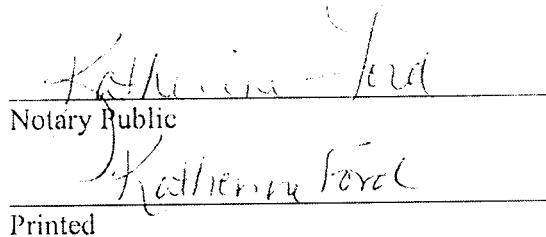 Katherine Ford
Notary Public
Katherine Ford
Printed